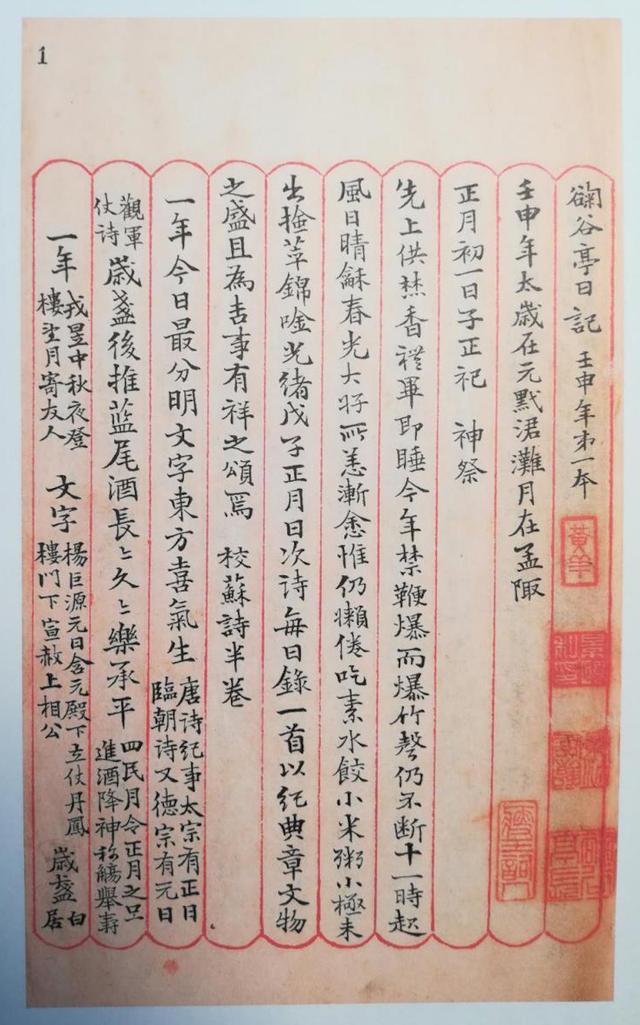 谷亭日記 壬申年弟一本 黃羊
壬申年太歲在元黓涒灘月在孟陬
正月初一日子正祀 神祭
先上供焚香禮畢即睡今年禁鞭爆而爆竹聲仍不斷十一時起
風日晴龢春光大好所恙漸愈惟仍懶倦吃素水餃小米粥小極未
出撿萃錦唫光緒戊子正月日次詩每日錄一首以紀典章文物
之盛且為吉事有祥之頌焉 校蘇詩半卷
一年今日最分明文字東方喜氣生 唐詩紀事太宗有正日臨朝詩又德宗有元日
觀軍仗詩 歲盞後推藍尾酒長〻久〻樂承平 四民月令正月之旦進酒降神称觴舉壽
一年 戎昱中秋夜登樓望月寄友人 文字 楊巨源元日含元殿下立仗丹鳳樓門下宣赦上相公 歲盞 白居
1